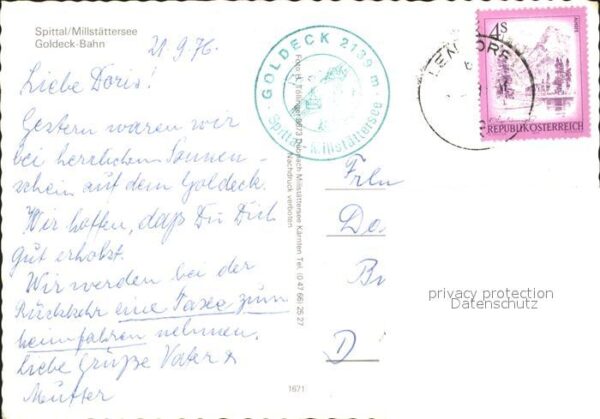 Spittal/Millstättersee
Goldeck-Bahn
21.9.76.
Liebe Doris!
Gestern waren wir
bei herrlichem Sonnen-
schein auf dem Goldeck.
Wir hoffen, daß Du Dich
gut erholst.
Wir werden bei der
Rückkehr eine Taxe zum
heimfahren nehmen.
Liebe Grüße Vater &
Mutter
GOLDECK 2139 m
Spittal-Millstättersee
Nachdruck verboten
1671
4S
REPUBLIK ÖSTERREICH
Frln
Do
Br
D
privacy protection
Datenschutz